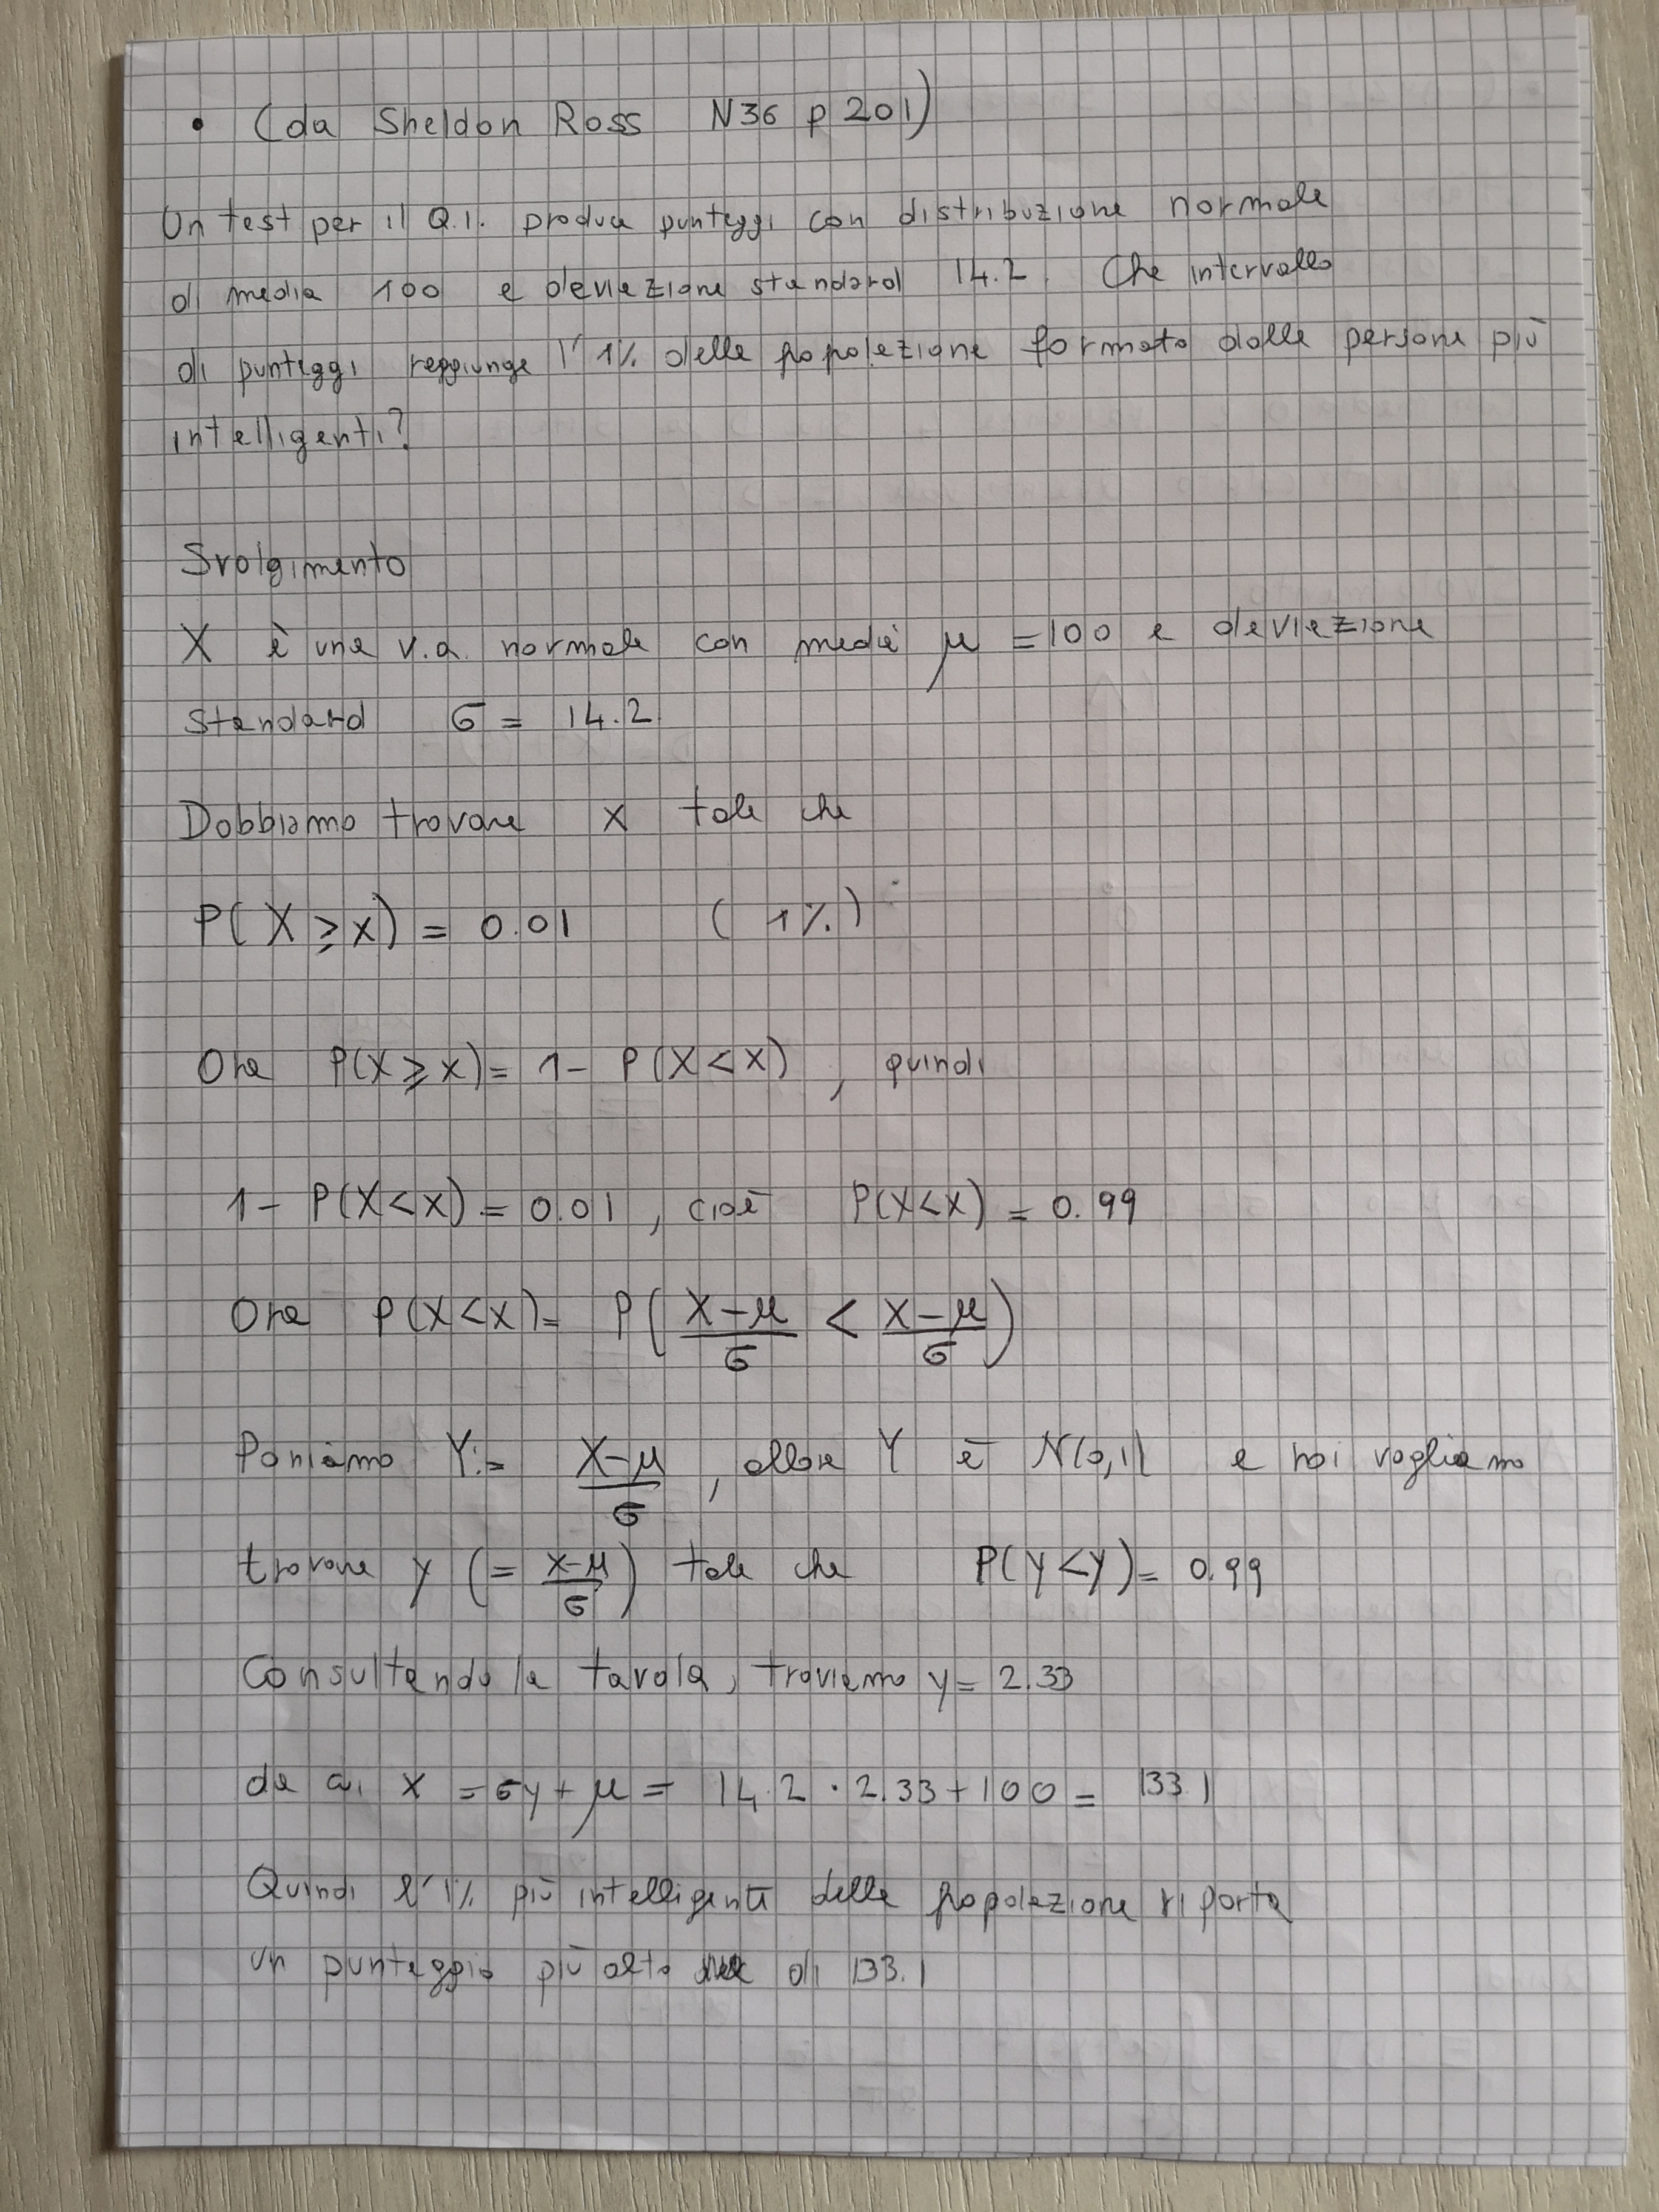 • (da Sheldon Ross N36 p 201)
Un test per il Q.I. produce punteggi con distribuzione normale
di media 100 e deviazione standard 14.2. Che intervallo
di punteggi raggiunge l'1% della popolazione formato dalle persone più
intelligenti?
Svolgimento
X è una v.a. normale con media μ = 100 e deviazione
standard σ = 14.2
Dobbiamo trovare x tale che
P(X ≥ x) = 0.01 (1%)
Ora P(X ≥ x) = 1 - P(X < x), quindi
1 - P(X < x) = 0.01, cioè P(X < x) = 0.99
Ora P(X < x) = P((X-μ)/σ < (x-μ)/σ)
Poniamo Y := (X-μ)/σ, allora Y è N(0,1) e noi vogliamo
trovare y (= (x-μ)/σ) tale che P(Y < y) = 0.99
Consultando la tavola, troviamo y = 2.33
da cui x = σy + μ = 14.2 · 2.33 + 100 = 133.1
Quindi l'1% più intelligente della popolazione riporta
un punteggio più alto di 133.1